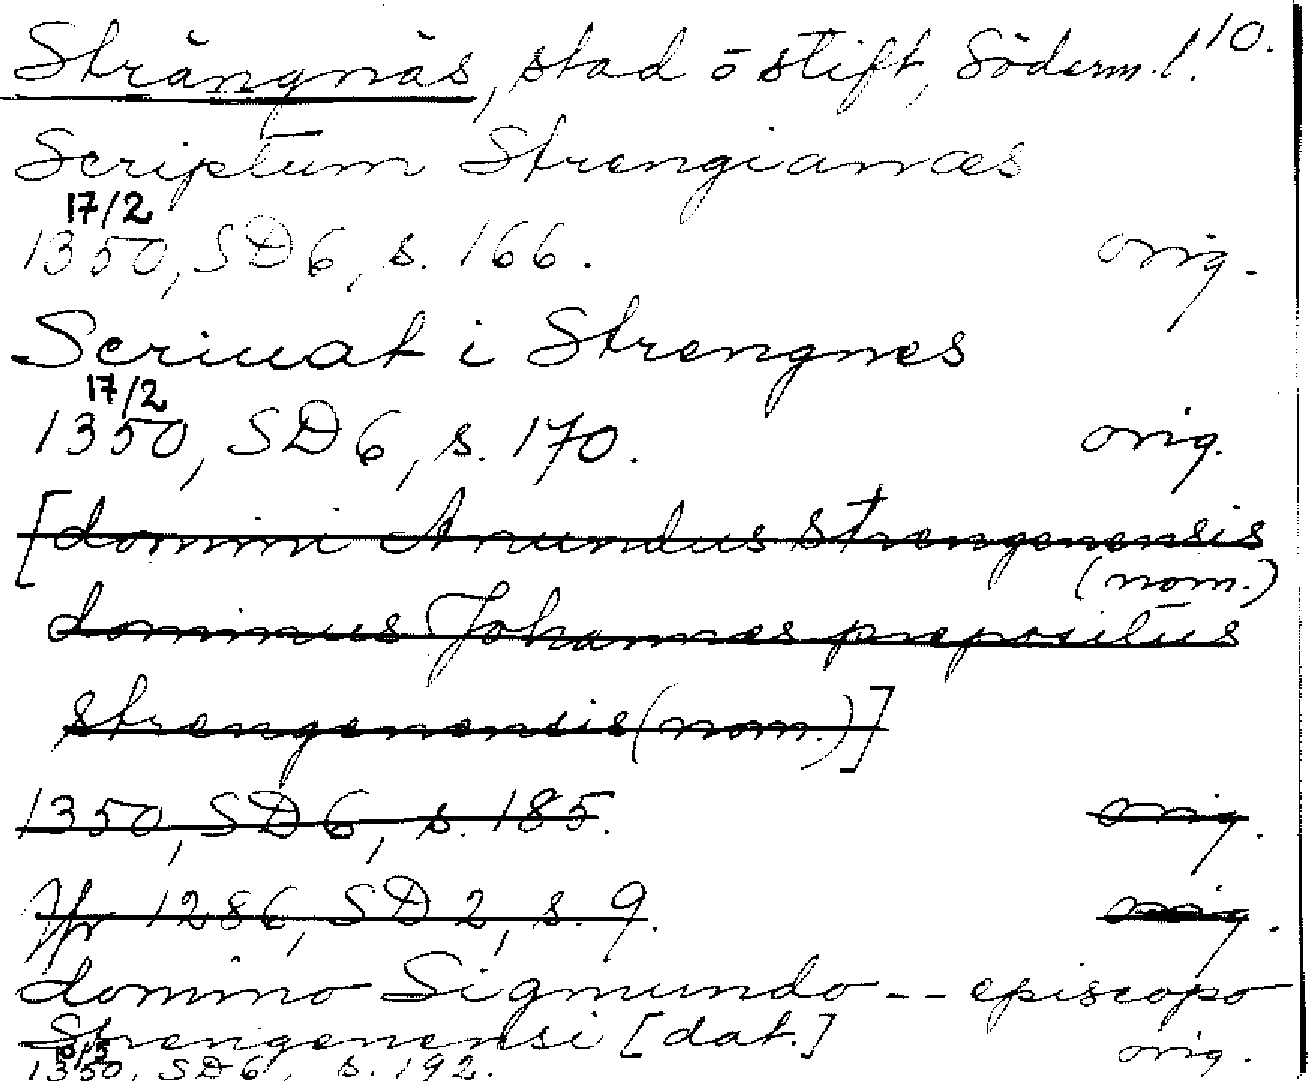 Strängnäs, stad o stift, Söderm.l. 10.
Scriptum Strengianæs
17/2
1350, SD 6, s. 166. orig.
Scriuat i Strengnes
17/2
1350, SD 6, s. 170. orig.
[domini Anundus strengenensis
(nom.)
dominus Johannes prepositus
strengenensis (nom.)]
1350, SD 6, s. 185. orig.
Jfr 1286, SD 2, s. 9. orig.
domino Sigmundo -- episcopo
Strengenensi [dat.] orig.
1350, SD 6, s. 192.